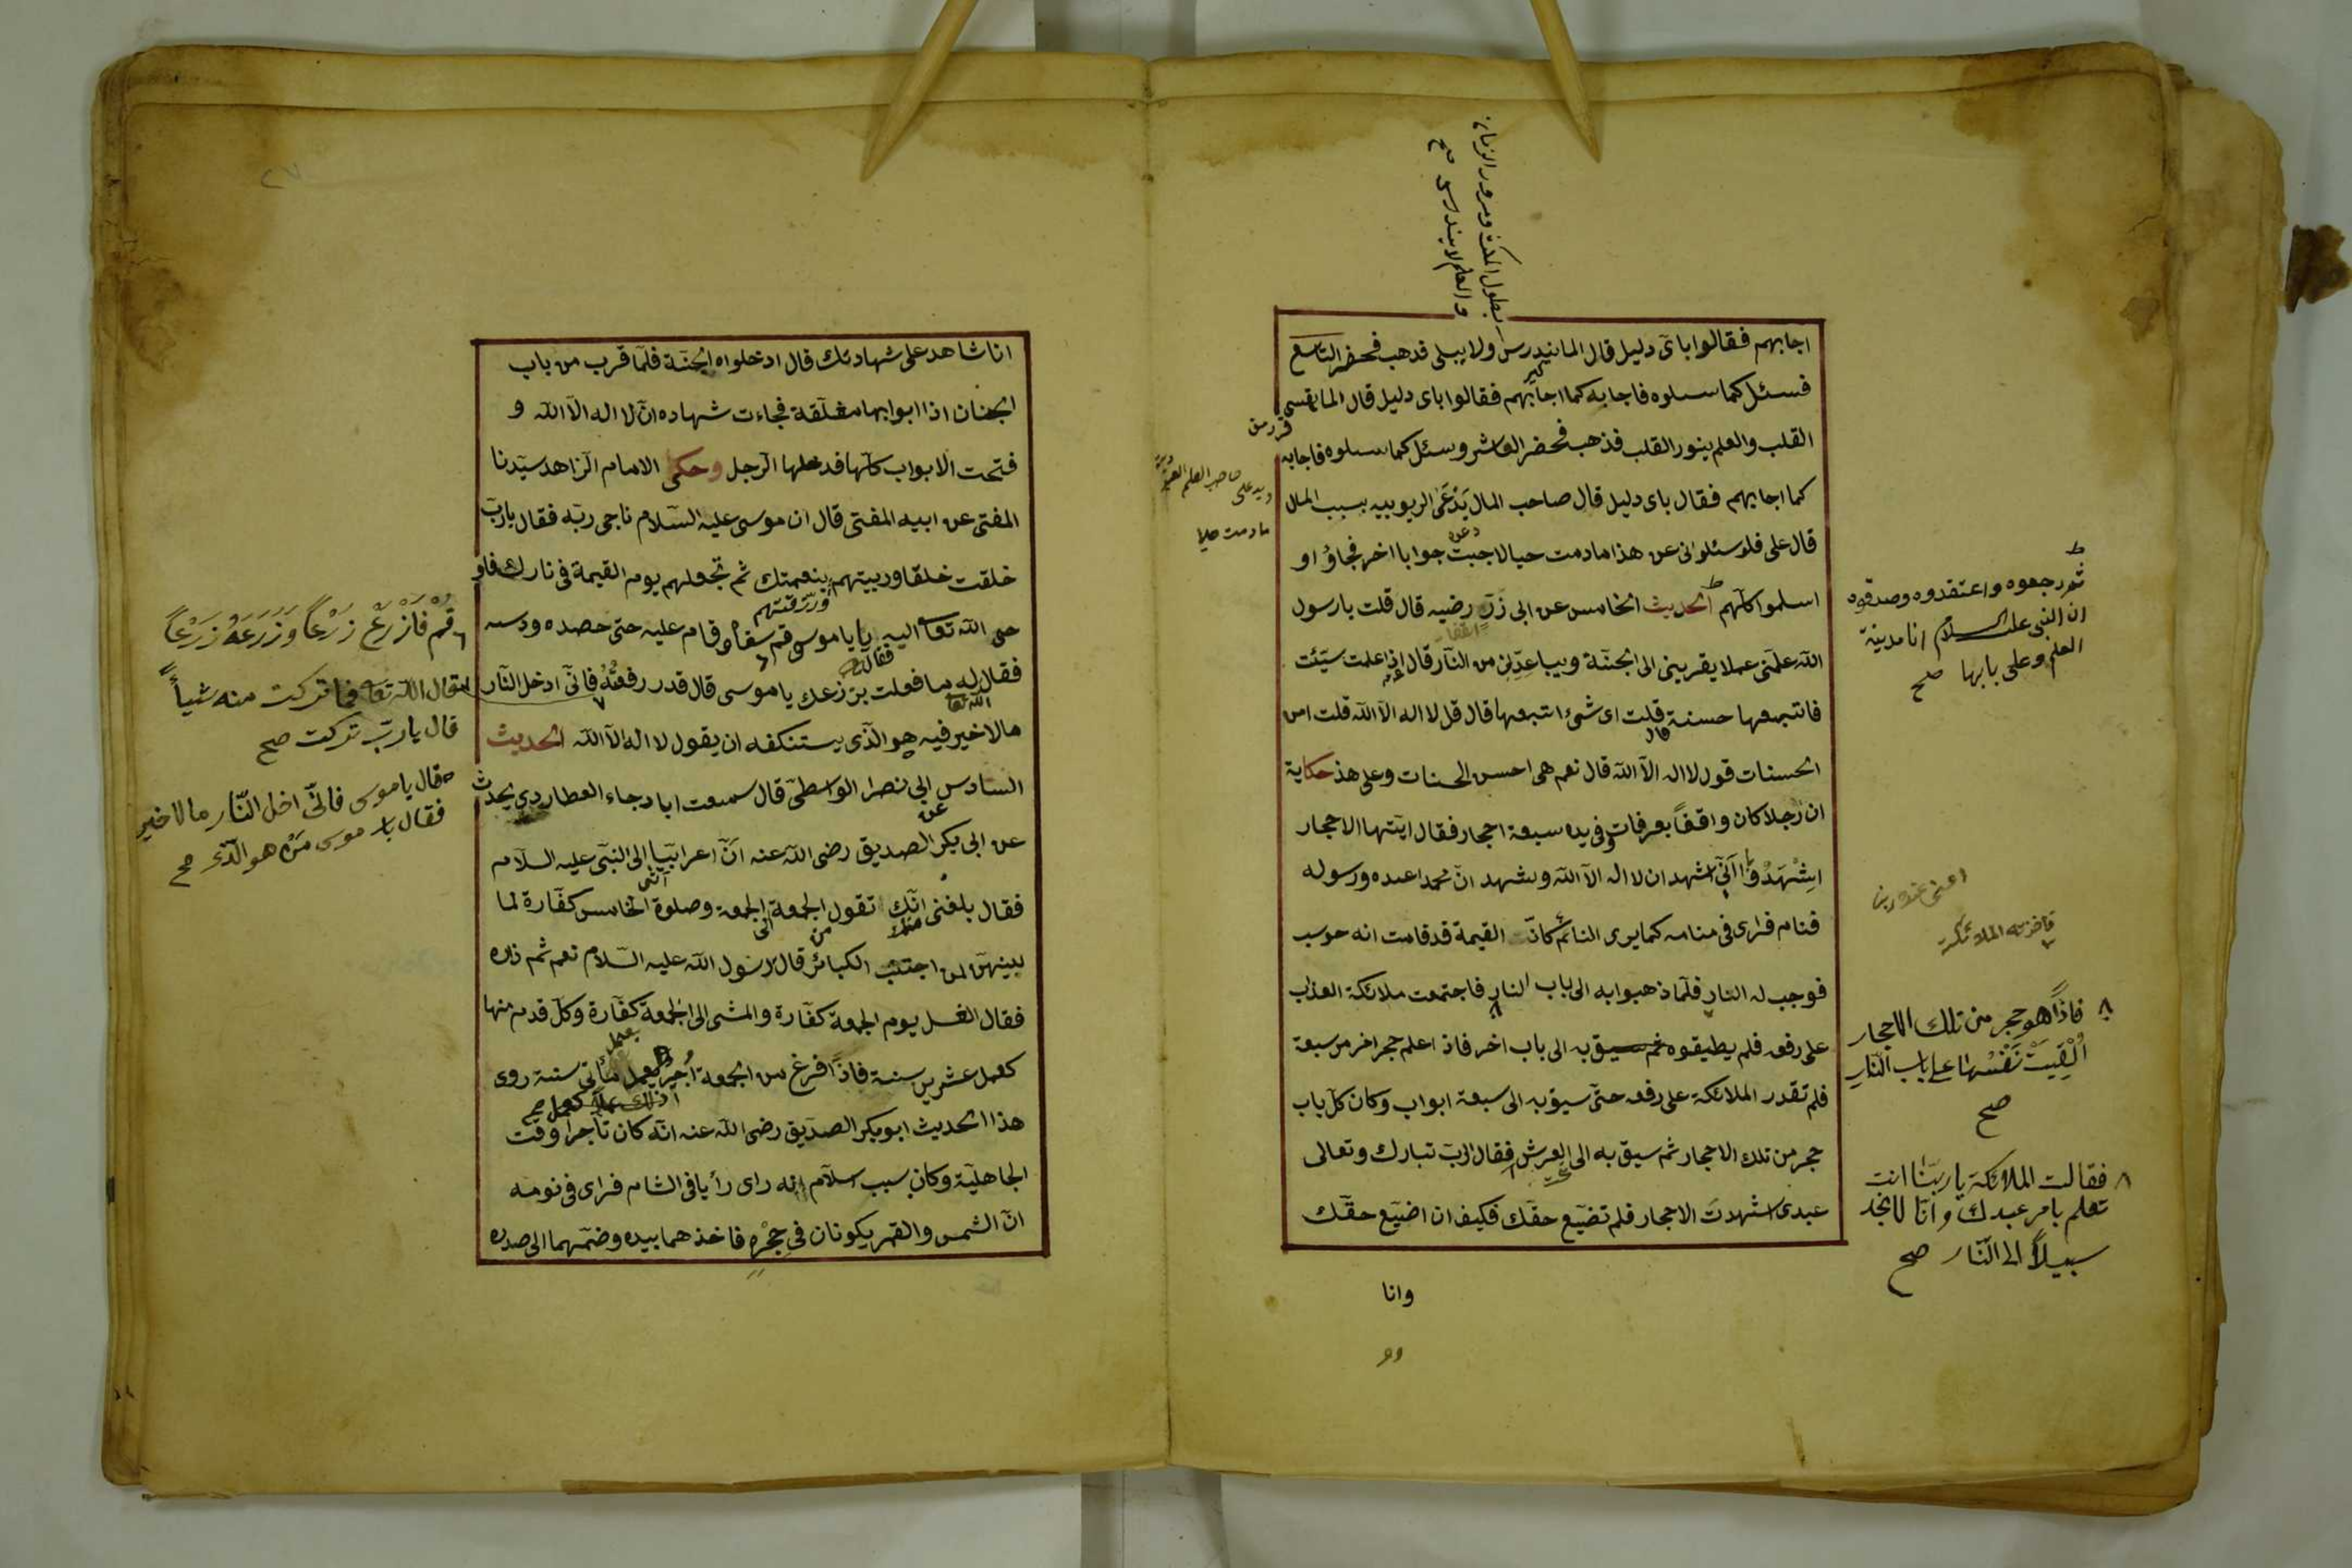 اجابهم فقالوا بای دلیل قال المال یندرس ولا یبلی فذهب فحضر التاسع
فسئل كما سئلوه فاجابه كما اجابهم فقالوا بای دلیل قال المال یقسی
القلب والعلم ینور القلب فذهب فحضر العاشر وسئل كما سئلوه فاجابه
كما اجابهم فقال بای دلیل قال صاحب المال یَدْعَی الربوبیه بسبب المال
قال علی فلو سئلوانی عن هذا مادمت حیا لاجبت جوابا اخر فجاؤ او
اسلموا كلّهم الحدیث الخامس عن ابی زرّ رضیه قال قلت یا رسول
الله علّمنی عملا یقربنی الی الجنّة ویباعدنی من النّار قال اذا عملت سیّئت
فاتبعها حسنة قلت ای شیء اتبعها قال قل لا اله الّا الله قلت امن
الحسنات قول لا اله الّا الله قال نعم هی احسن الحسنات وعلی هذ حكایة
ان رجلا كان واقفاً بعرفات وفی یده سبعة احجار فقال ایتها الاحجار
اشْهَدُوْا انّی اشهد ان لا اله الّا الله وشهد انّ محمدا عبده ورسوله
فنام فرای فی منامه كما یری النائم كانّ القیمة قد قامت انه حوسب
فوجب له النار فلمّا ذهبوا به الی باب النار فاجتمعت ملائكة العذاب
علی رفعه فلم یطیقوه ثم سیق به الی باب اخر فاذ اعلم حجر اخر من سبعة
فلم تقدر الملائكة علی رفعه حتّی سیق به الی سبعة ابواب وكان كلّ باب
حجر من تلك الاحجار ثم سیق به الی العرش فقال الربّ تبارك وتعالی
عبدی اشهدت الاحجار فلم تضیّع حقّك فكیف ان اضیّع حقّك
وانا
بطول المكث ومرور الزمان
والعلم لا یندرس صح
مادمت حیا
ثم رجعوه واعتقدوه وصدقوه
ان النبی علیه السلام انا مدینة
العلم وعلی بابها صح
فاذاً هو حجر من تلك الاحجار
اُلْقِیَتْ نَفْسُها علی باب النّار
صح
فقالت الملائكة یا ربّنا انت
تعلم بامر عبدك وانّا لا نجد
سبیلاً الی النّار صح
انا شاهد علی شهادتك قال ادخلواه الجنّة فلمّا قرب من باب
الجنان اذا ابوابها مغلّقة فجاءت شهاده ان لا اله الّا الله و
فتحت الابواب كلّها فدخلها الرّجل وحكی الامام الزّاهد سیّدنا
المفتی عن ابیه المفتی قال ان موسی علیه السّلام ناجی ربّه فقال یا ربّ
خلقت خلقا وربیتهم بنعمتك ثم تجعلهم یوم القیمة فی نارك فاو
حی الله تعا الیه یا موسی قم سقاه وقام علیه حتی حصده ودسه
فقال له ما فعلت بزرعك یا موسی قال قد رفعتُهُ فانّی ادخل النّار
ما لا خیر فیه هو الّذی یستنكفه ان یقول لا اله الّا الله الحدیث
السادس عن ابی نصر الواسطی قال سمعت ابا رجاء العطاردی یحدّث
عن ابی بكر الصدیق رضی الله عنه انّ اعرابیّا الی النبّی علیه السلام
فقال بلغنی انّك تقول الجمعة الی الجمعة وصلوة الخامس كفّارة لما
بینهنّ لمن اجتنب الكبائر قال رسول الله علیه السّلام نعم ثم زاده
فقال الغسل یوم الجمعة كفّارة والمشی الی الجمعة كفّارة وكلّ قدم منها
كعمل عشرین سنة فاذاً افرغ من الجمعة اُجِیزُ بعمل مأتی سنة روی
هذا الحدیث ابو بكر الصدّیق رضی الله عنه انّه كان تاجرا وقت
الجاهلیّة وكان سبب اسلام انه رای رأیا فی الشام فرای فی نومه
انّ الشمس والقمر یكونان فی حِجْرِه فاخذهما بیده وضمّهما الی صدره
قُمْ فَازْرَعْ زَرْعاً وَزَرَعَهُ زَرْعاً
فقال الله تعا فما تركت منه شیأً
قال یا ربّ تركت صح
قال یا موسی فانّی ادخل النّار ما لا خیر
فقال یا موسی مَنْ هو الّذی صح